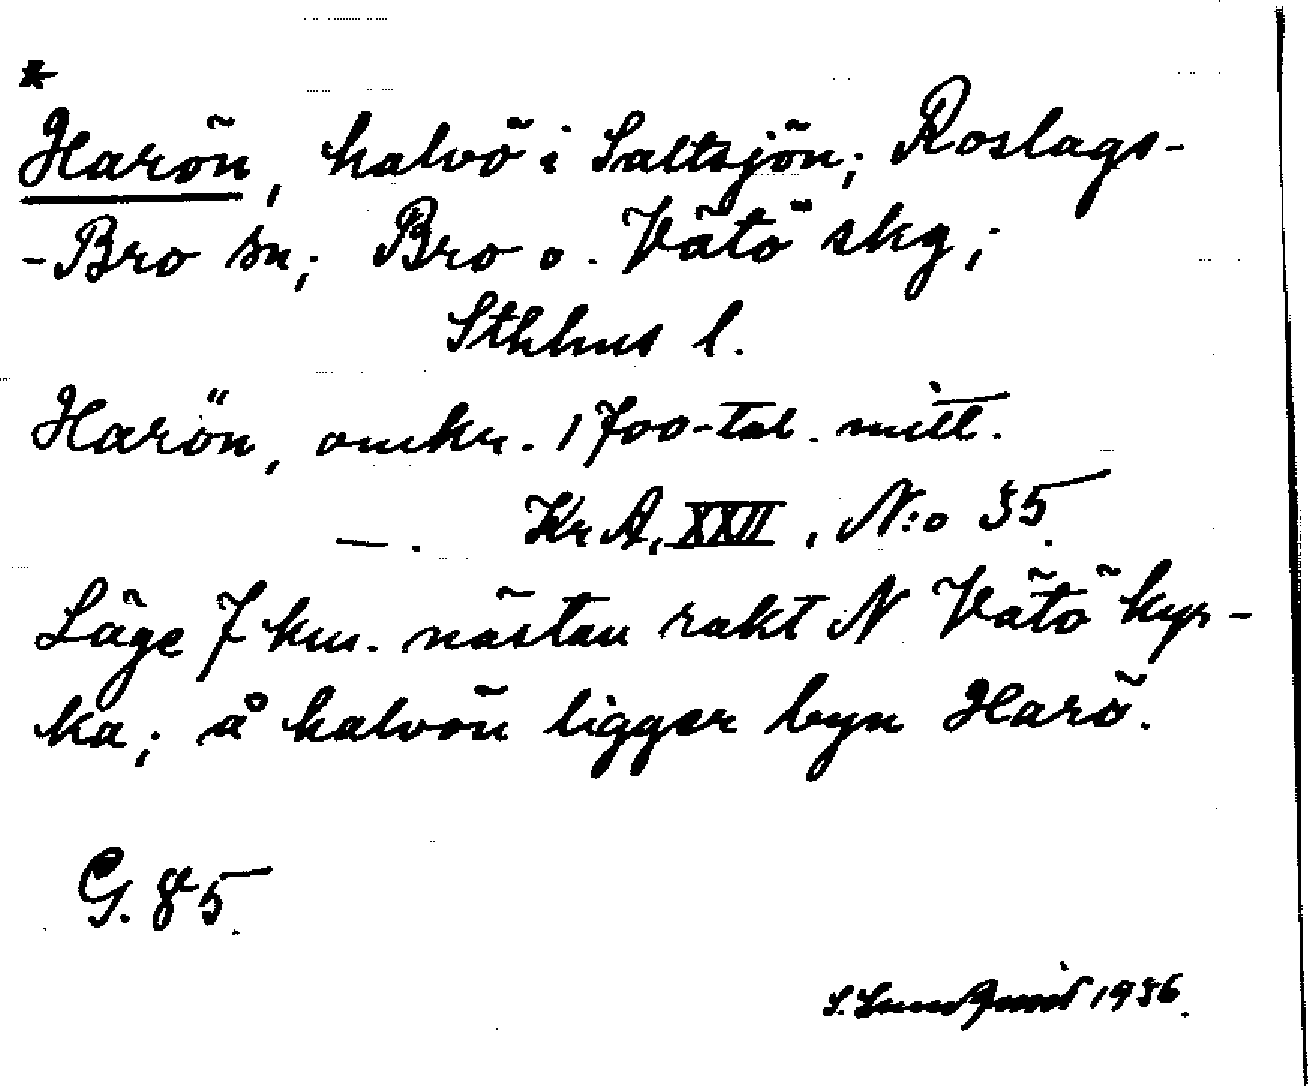 *
Harön, halvö i Saltsjön; Roslags-
-Bro sn; Bro o. Vätö skg;
Sthlms l.
Harön, omkr. 1700-tal. mitt.
—. KrA, XXII, N:o 35.
Läge 7 km. nästan rakt N Vätö kyr-
ka; å halvön ligger byn Harö.
G. 85.
S. Lundqvist 1936.